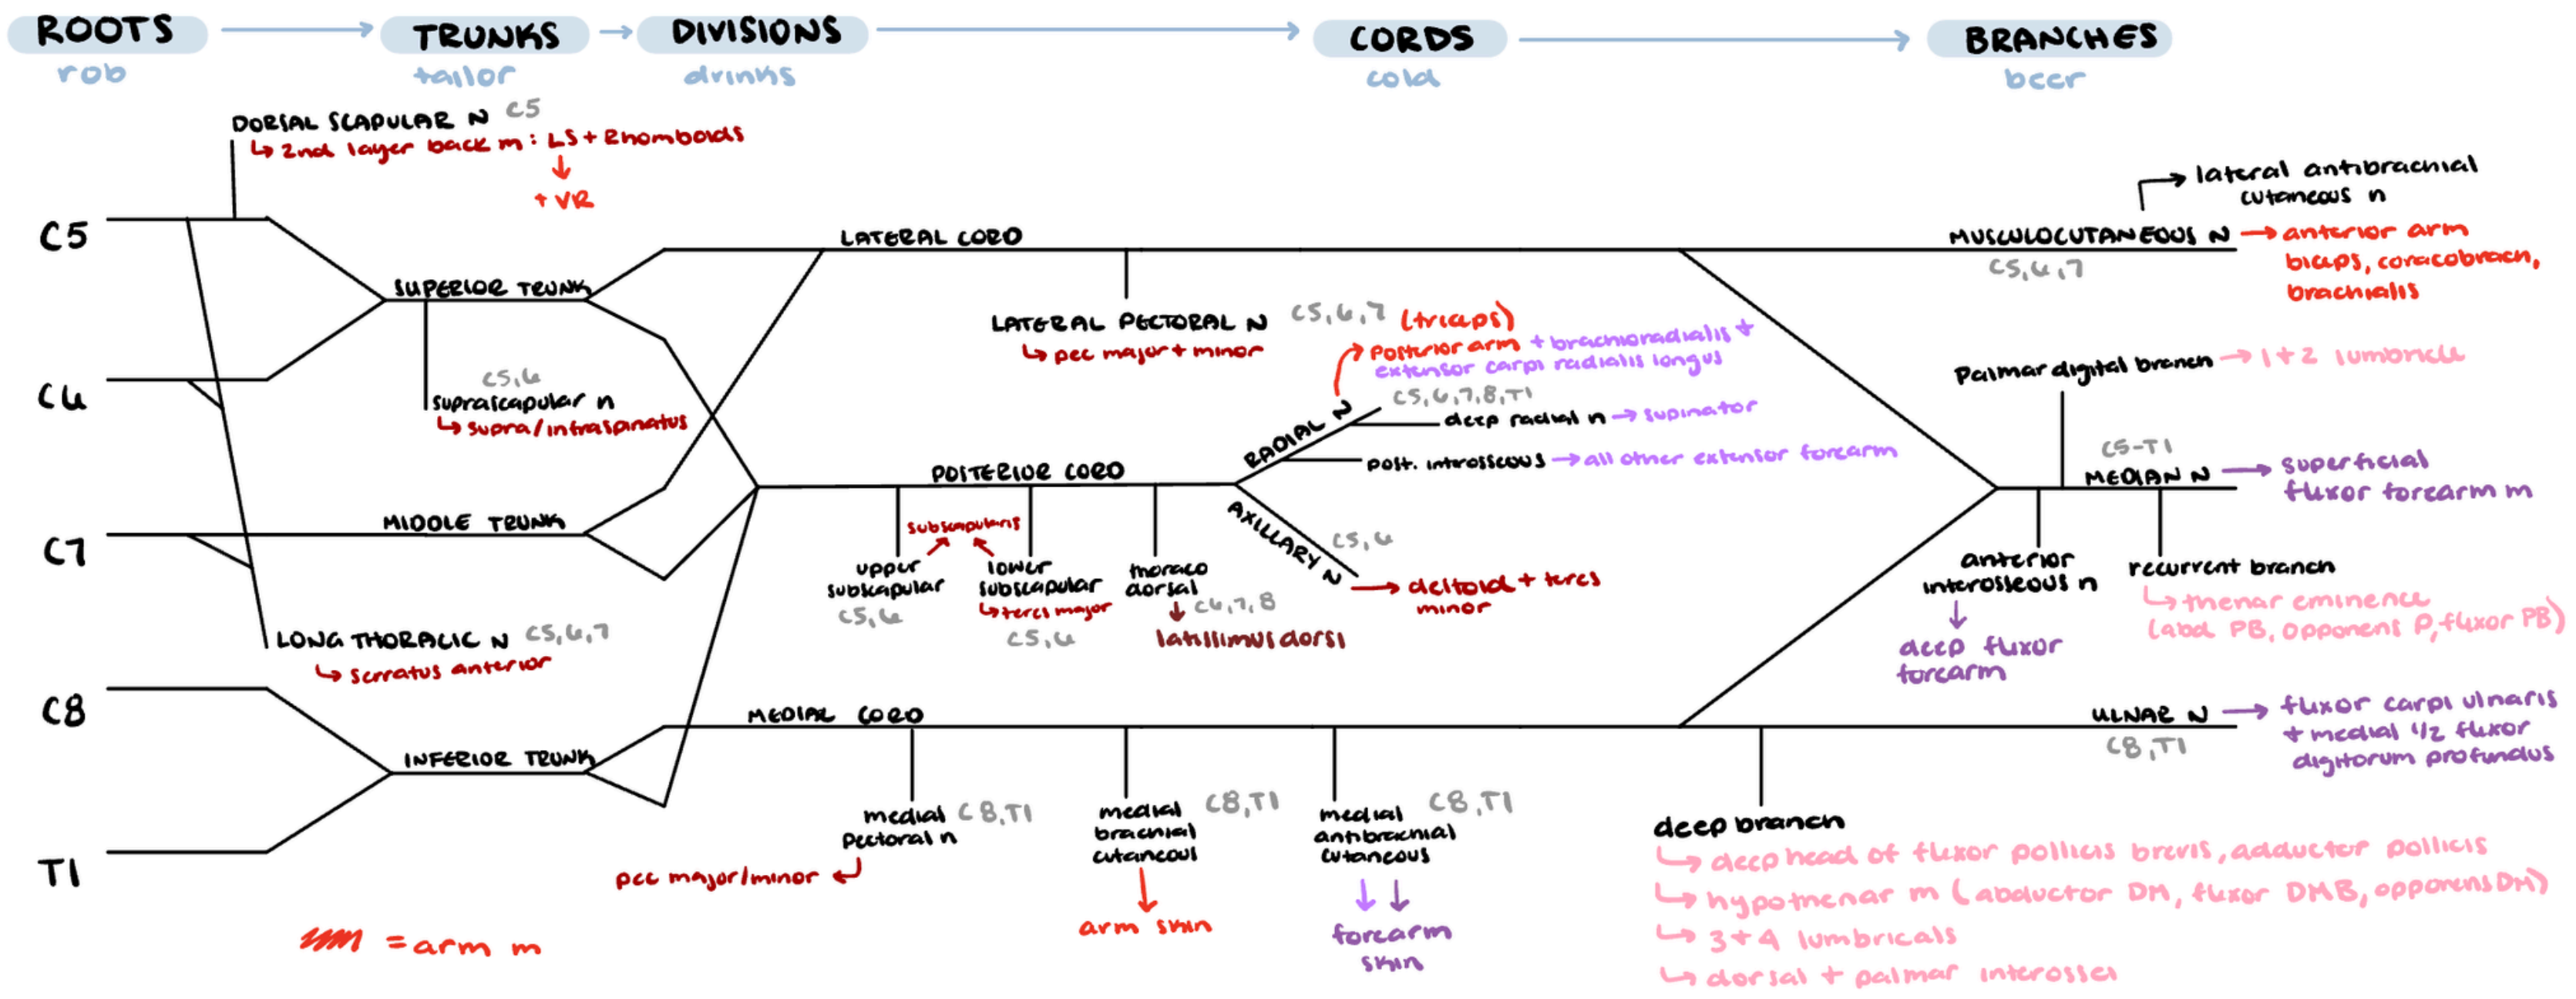 ROOTS → TRUNKS → DIVISIONS → CORDS → BRANCHES
rob tailor drinks cold beer
DORSAL SCAPULAR N C5
↳ 2nd layer back m: LS + Rhomboids
↓
+ VR
C5
C6
C7
C8
T1
SUPERIOR TRUNK
C5,6
suprascapular n
↳ supra/infraspinatus
MIDDLE TRUNK
LONG THORACIC N C5,6,7
↳ serratus anterior
INFERIOR TRUNK
= arm m
LATERAL CORD
LATERAL PECTORAL N C5,6,7
↳ pec major + minor
POSTERIOR CORD
subscapularis
upper
subscapular
C5,6
lower
subscapular
↳ teres major
C5,6
thoraco
dorsal
↓ C6,7,8
latissimus dorsi
RADIAL N
(triceps)
→ Posterior arm + brachioradialis +
extensor carpi radialis longus
C5,6,7,8,T1
deep radial n → supinator
post. interosseous → all other extensor forearm
AXILLARY N
C5,6
→ deltoid + teres
minor
MEDIAL CORD
medial
pectoral n
C8,T1
pec major/minor ↵
medial
brachial
cutaneous
C8,T1
↓
arm skin
medial
antibrachial
cutaneous
C8,T1
↓ ↓
forearm
skin
→ lateral antibrachial
cutaneous n
MUSCULOCUTANEOUS N → anterior arm
biceps, coracobrach,
brachialis
C5,6,7
Palmar digital branch → 1+2 lumbricle
C5-T1
MEDIAN N → superficial
fluxor forearm m
anterior
interosseous n
↓
deep fluxor
forearm
recurrent branch
↳ thenar eminence
(abd PB, opponens P, fluxor PB)
ULNAR N → fluxor carpi ulnaris
+ medial 1/2 fluxor
digitorum profundus
C8,T1
deep branch
↳ deep head of fluxor pollicis brevis, adductor pollicis
↳ hypothenar m (abductor DM, fluxor DMB, opponens DM)
↳ 3+4 lumbricals
↳ dorsal + palmar interossei